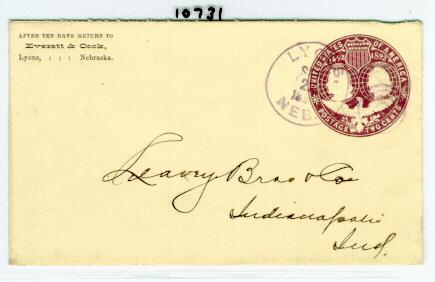 10731
AFTER TEN DAYS RETURN TO
Everett & Cook,
Lyons, : : : Nebraska.
LYO
NEB
UNITED STATES OF AMERICA
1492 1892
POSTAGE TWO CENTS
Leavey Bros & Co
Indianapolis
Ind.